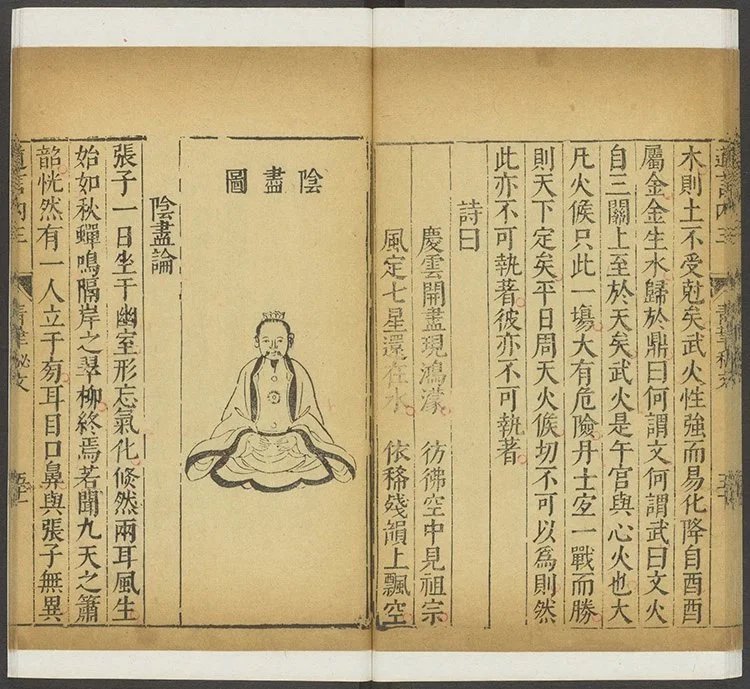 木則土不受剋矣武火性強而易化降自酉酉
屬金金生水歸於鼎曰何謂文何謂武曰文火
自三關上至於天矣武火是午宮與心火也大
凡火候只此一塲大有危險丹士宜一戰而勝
則天下定矣平日周天火候切不可以爲則然
此亦不可執著彼亦不可執著
詩曰
慶雲開盡現鴻濛 彷彿空中見祖宗
風定七星還在水 依稀殘韻上飄空
陰盡圖
陰盡論
張子一日坐于幽室形忘氣化倏然兩耳風生
始如秋蟬鳴隔岸之翠柳終焉若聞九天之簫
韶恍然有一人立于耳目口鼻與張子無異
青華秘文